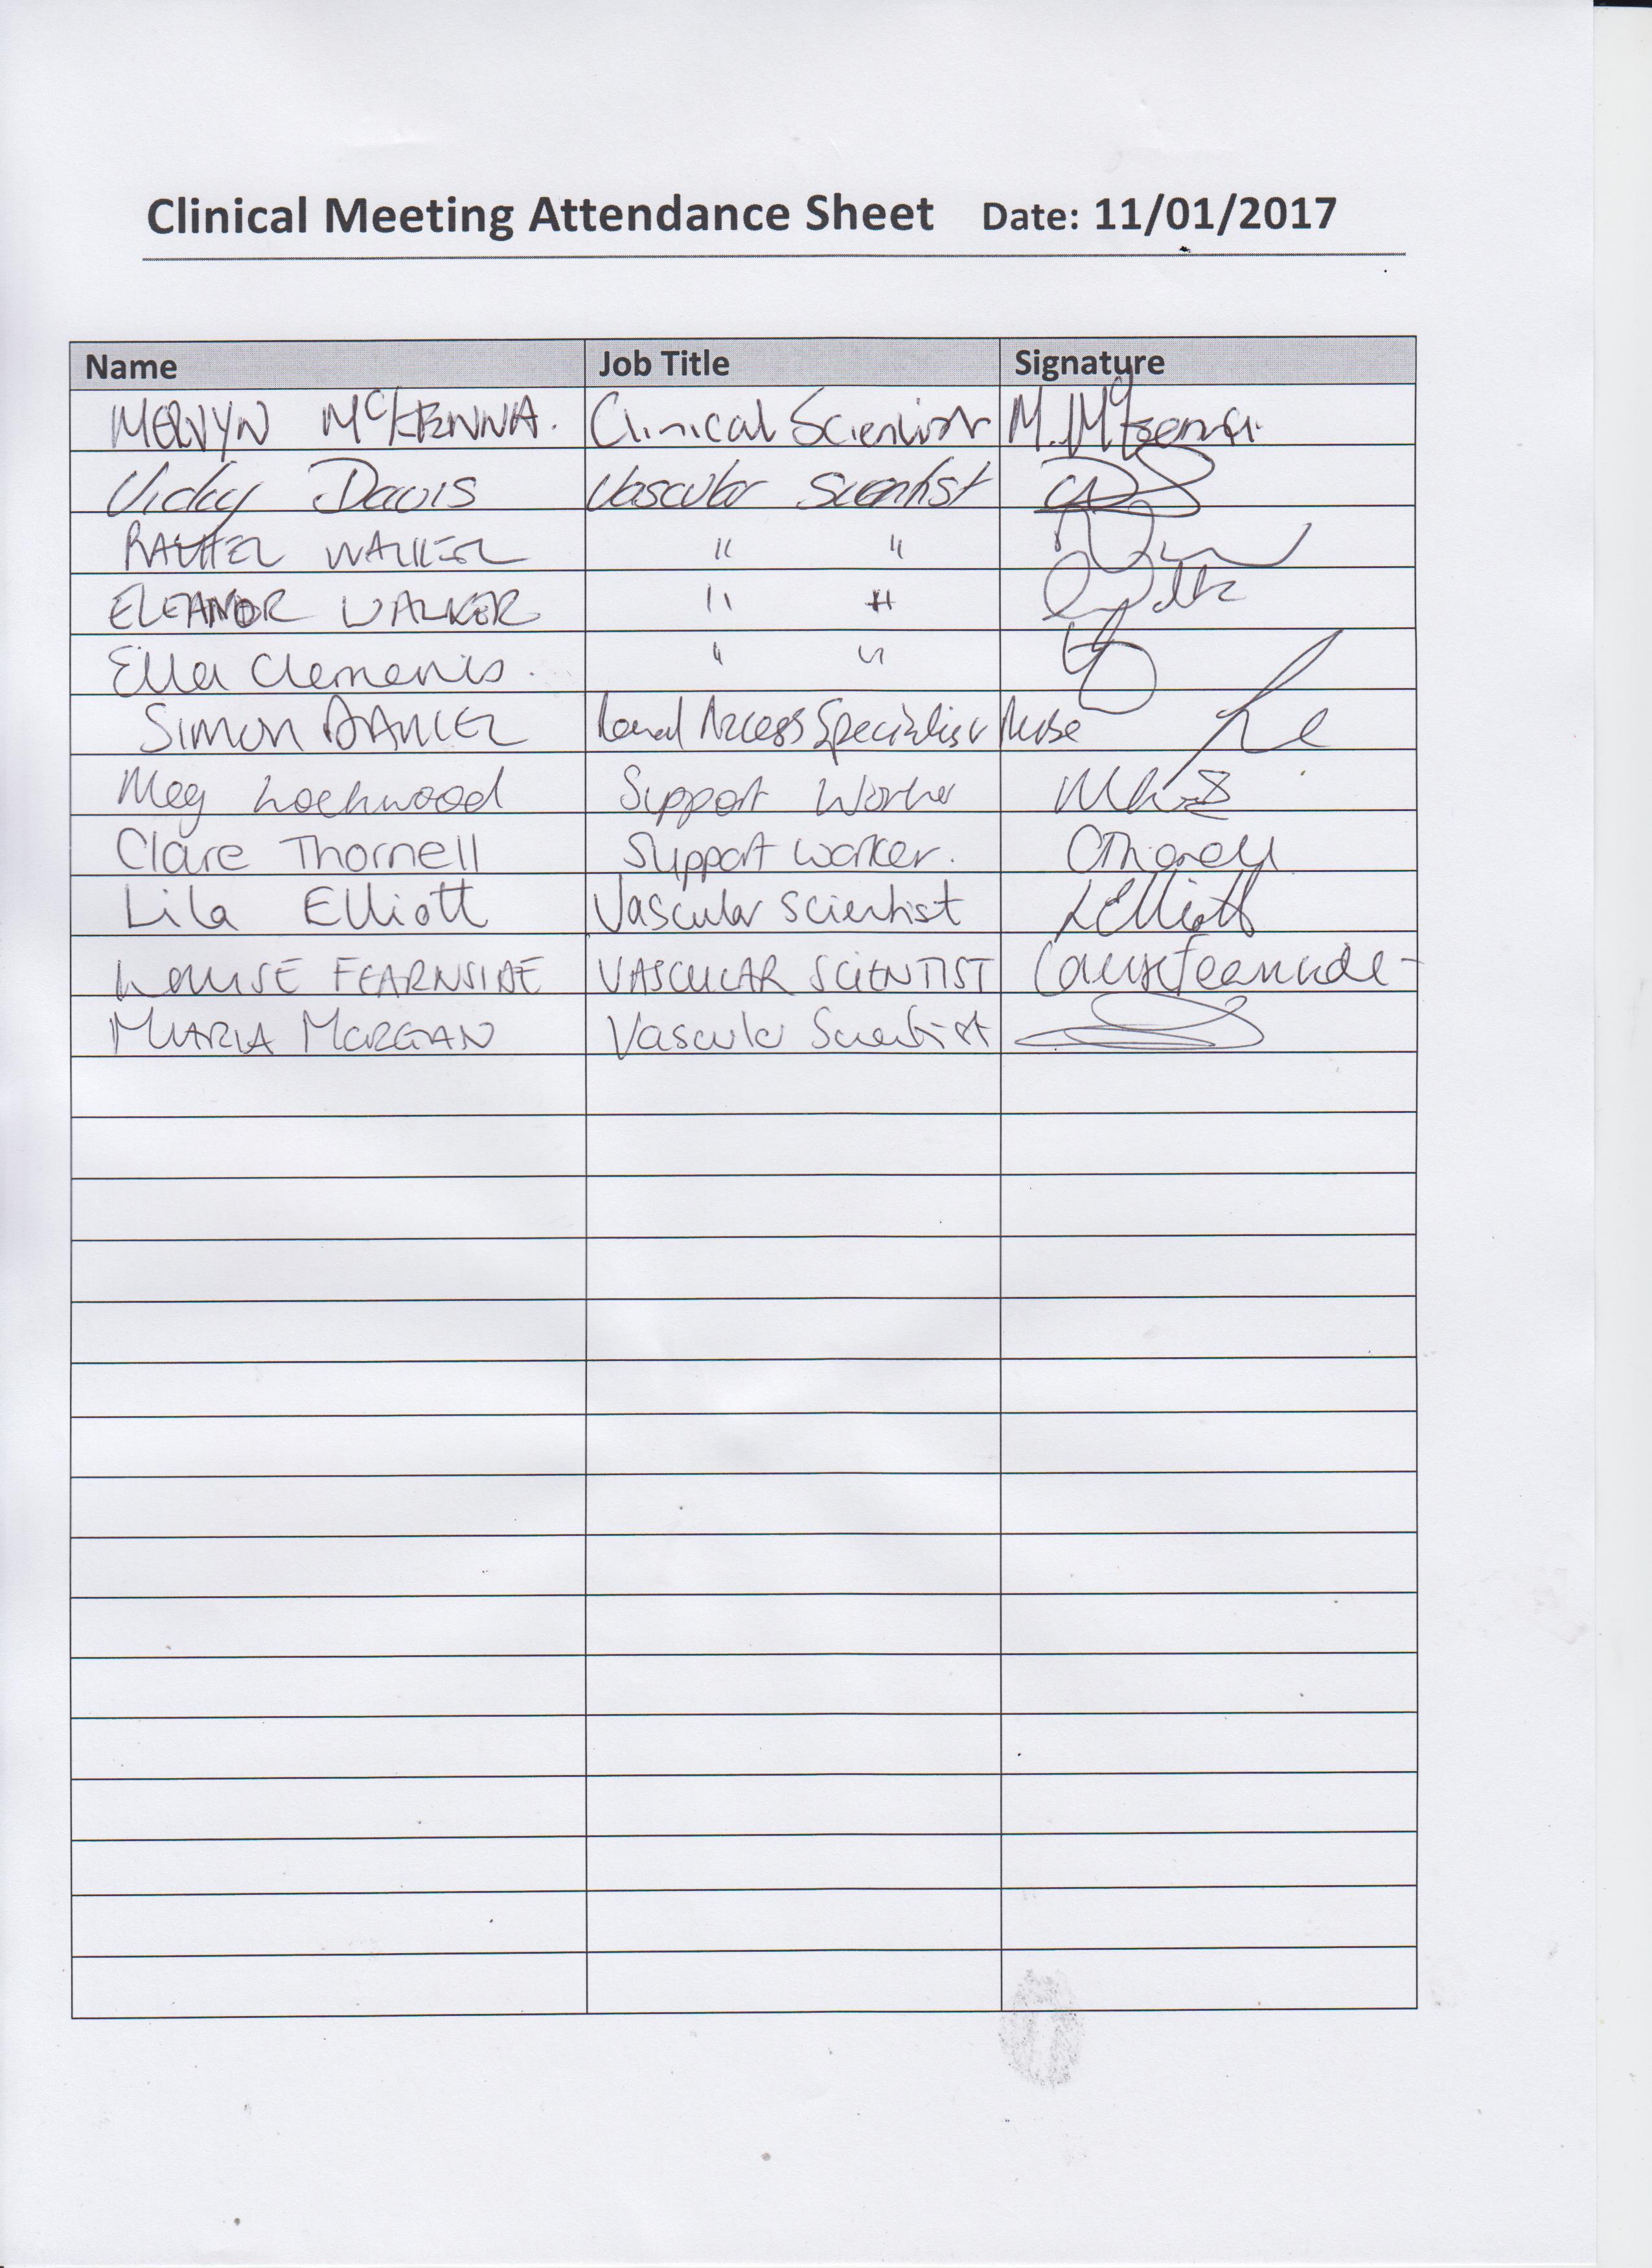 Clinical Meeting Attendance Sheet Date: 11/01/2017
Name Job Title Signature
MERVYN McKENNA. Clinical Scientist M. McKenna.
Vicky Davis Vascular Scientist
RACHEL WALKER " "
ELEANOR WALKER " "
Ella Clements. " "
SIMON DANIEL Renal Access Specialist Nurse
Meg Lockwood Support Worker
Clare Thornell Support worker. CThornell
Lila Elliott Vascular scientist LElliott
LOUISE FEARNSIDE VASCULAR SCIENTIST Louise Fearnside
MARIA MORGAN Vascular Scientist